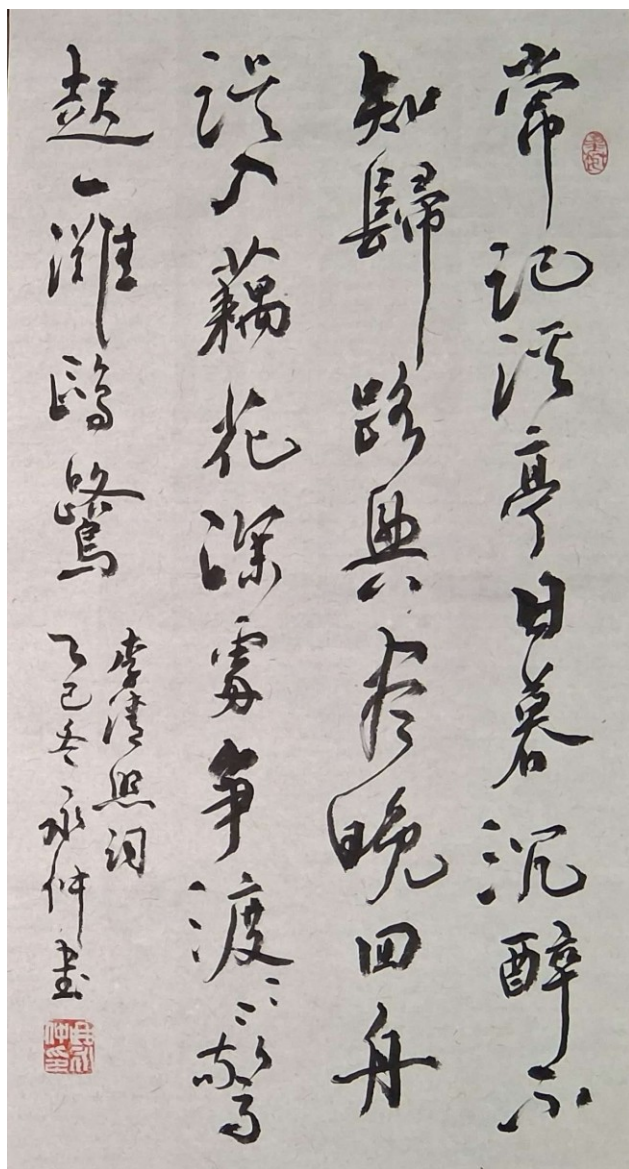 常記溪亭日暮沉醉不
知歸路興盡晚回舟
誤入藕花深處爭渡〻驚
起一灘鷗鷺
李清照詞
乙巳冬永仲書